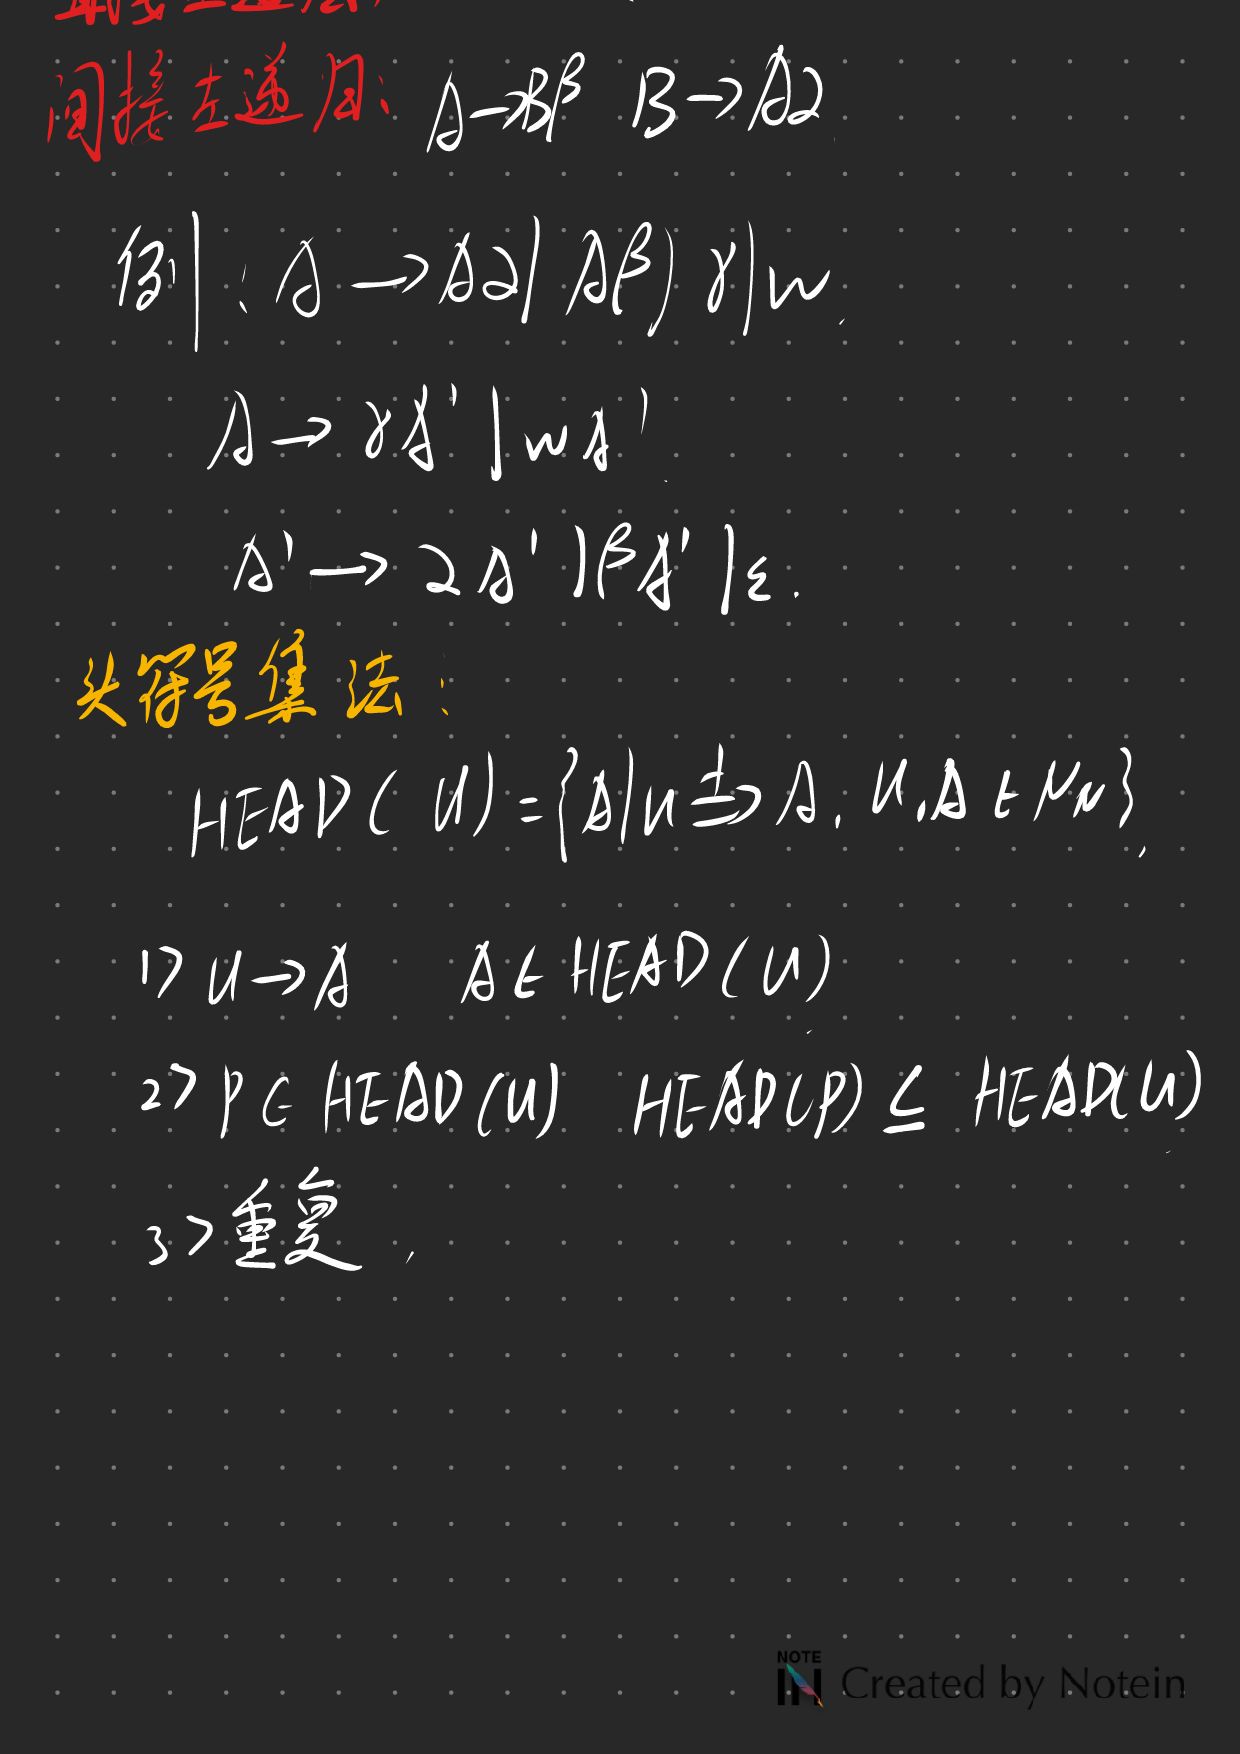 间接左递归: A→Bβ B→Aα
例: A→Aα|Aβ|γ|w
A→γA'|wA'
A'→αA'|βA'|ε.
头符号集法:
HEAD(U)={A|U⇒⁺A, U,A∈V_N}
1> U→A A∈HEAD(U)
2> P∈HEAD(U) HEAD(P)⊆HEAD(U)
3> 重复
NOTE IN Created by Notein